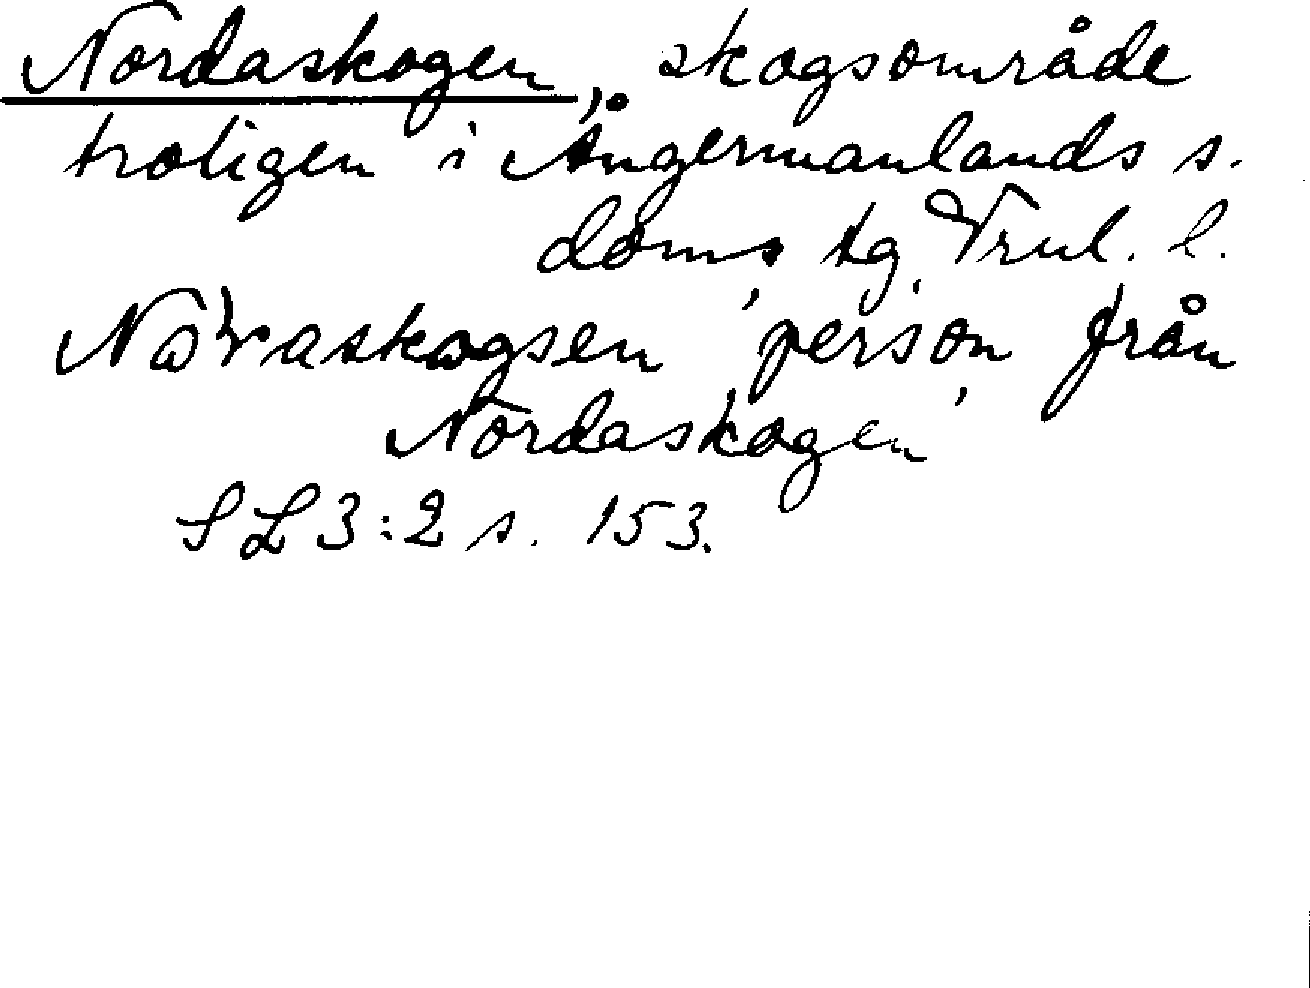 Nordaskogen, skogsområde
troligen i Ångermanlands s.
doms tg. Vrul. l.
Nåraskogsen 'person från
Nordaskogen'
SL 3:2 s. 153.